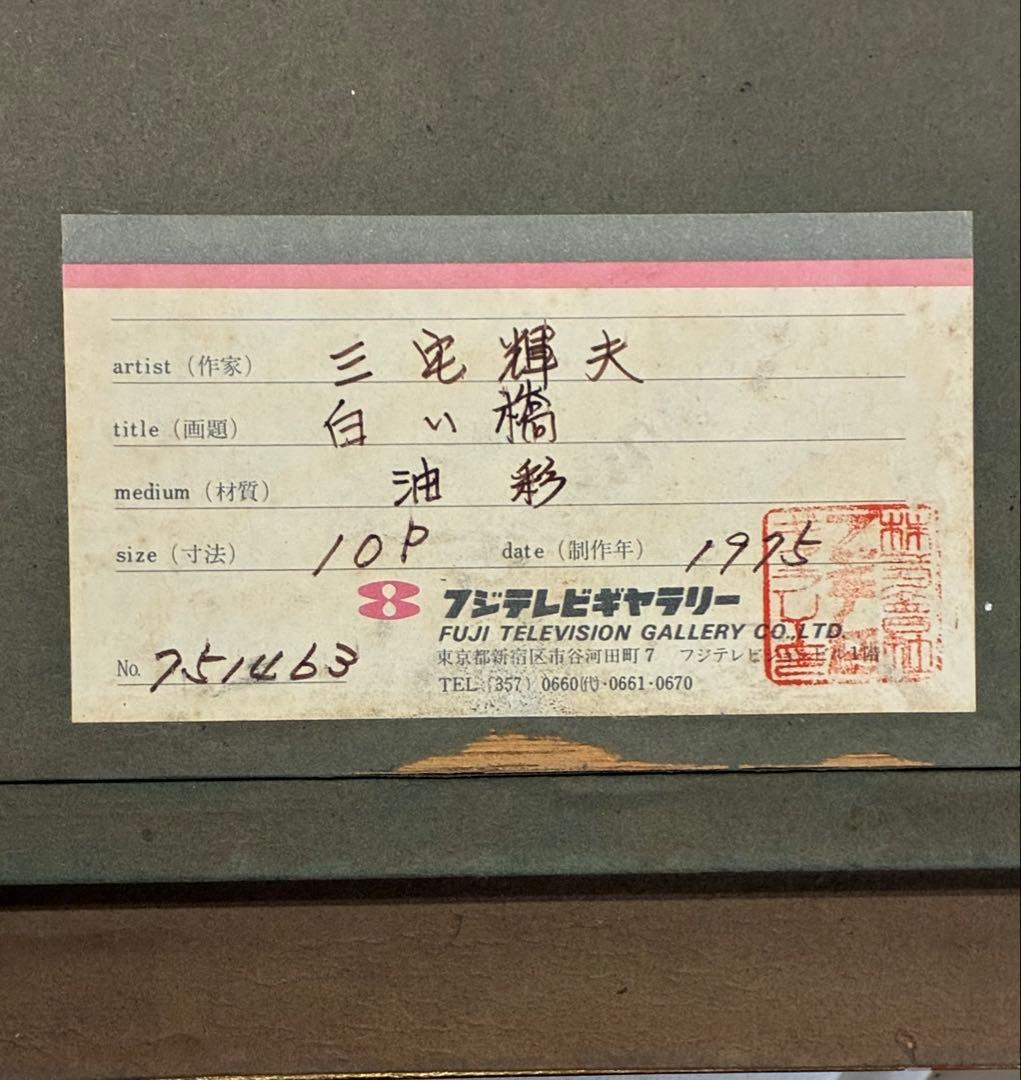 artist（作家） 三宅輝夫
title（画題） 白い橋
medium（材質） 油彩
size（寸法） 10P date（制作年） 1975
フジテレビギャラリー
FUJI TELEVISION GALLERY CO.,LTD.
東京都新宿区市谷河田町7 フジテレビ 1階
No. 751463
TEL（357）0660㈹・0661・0670